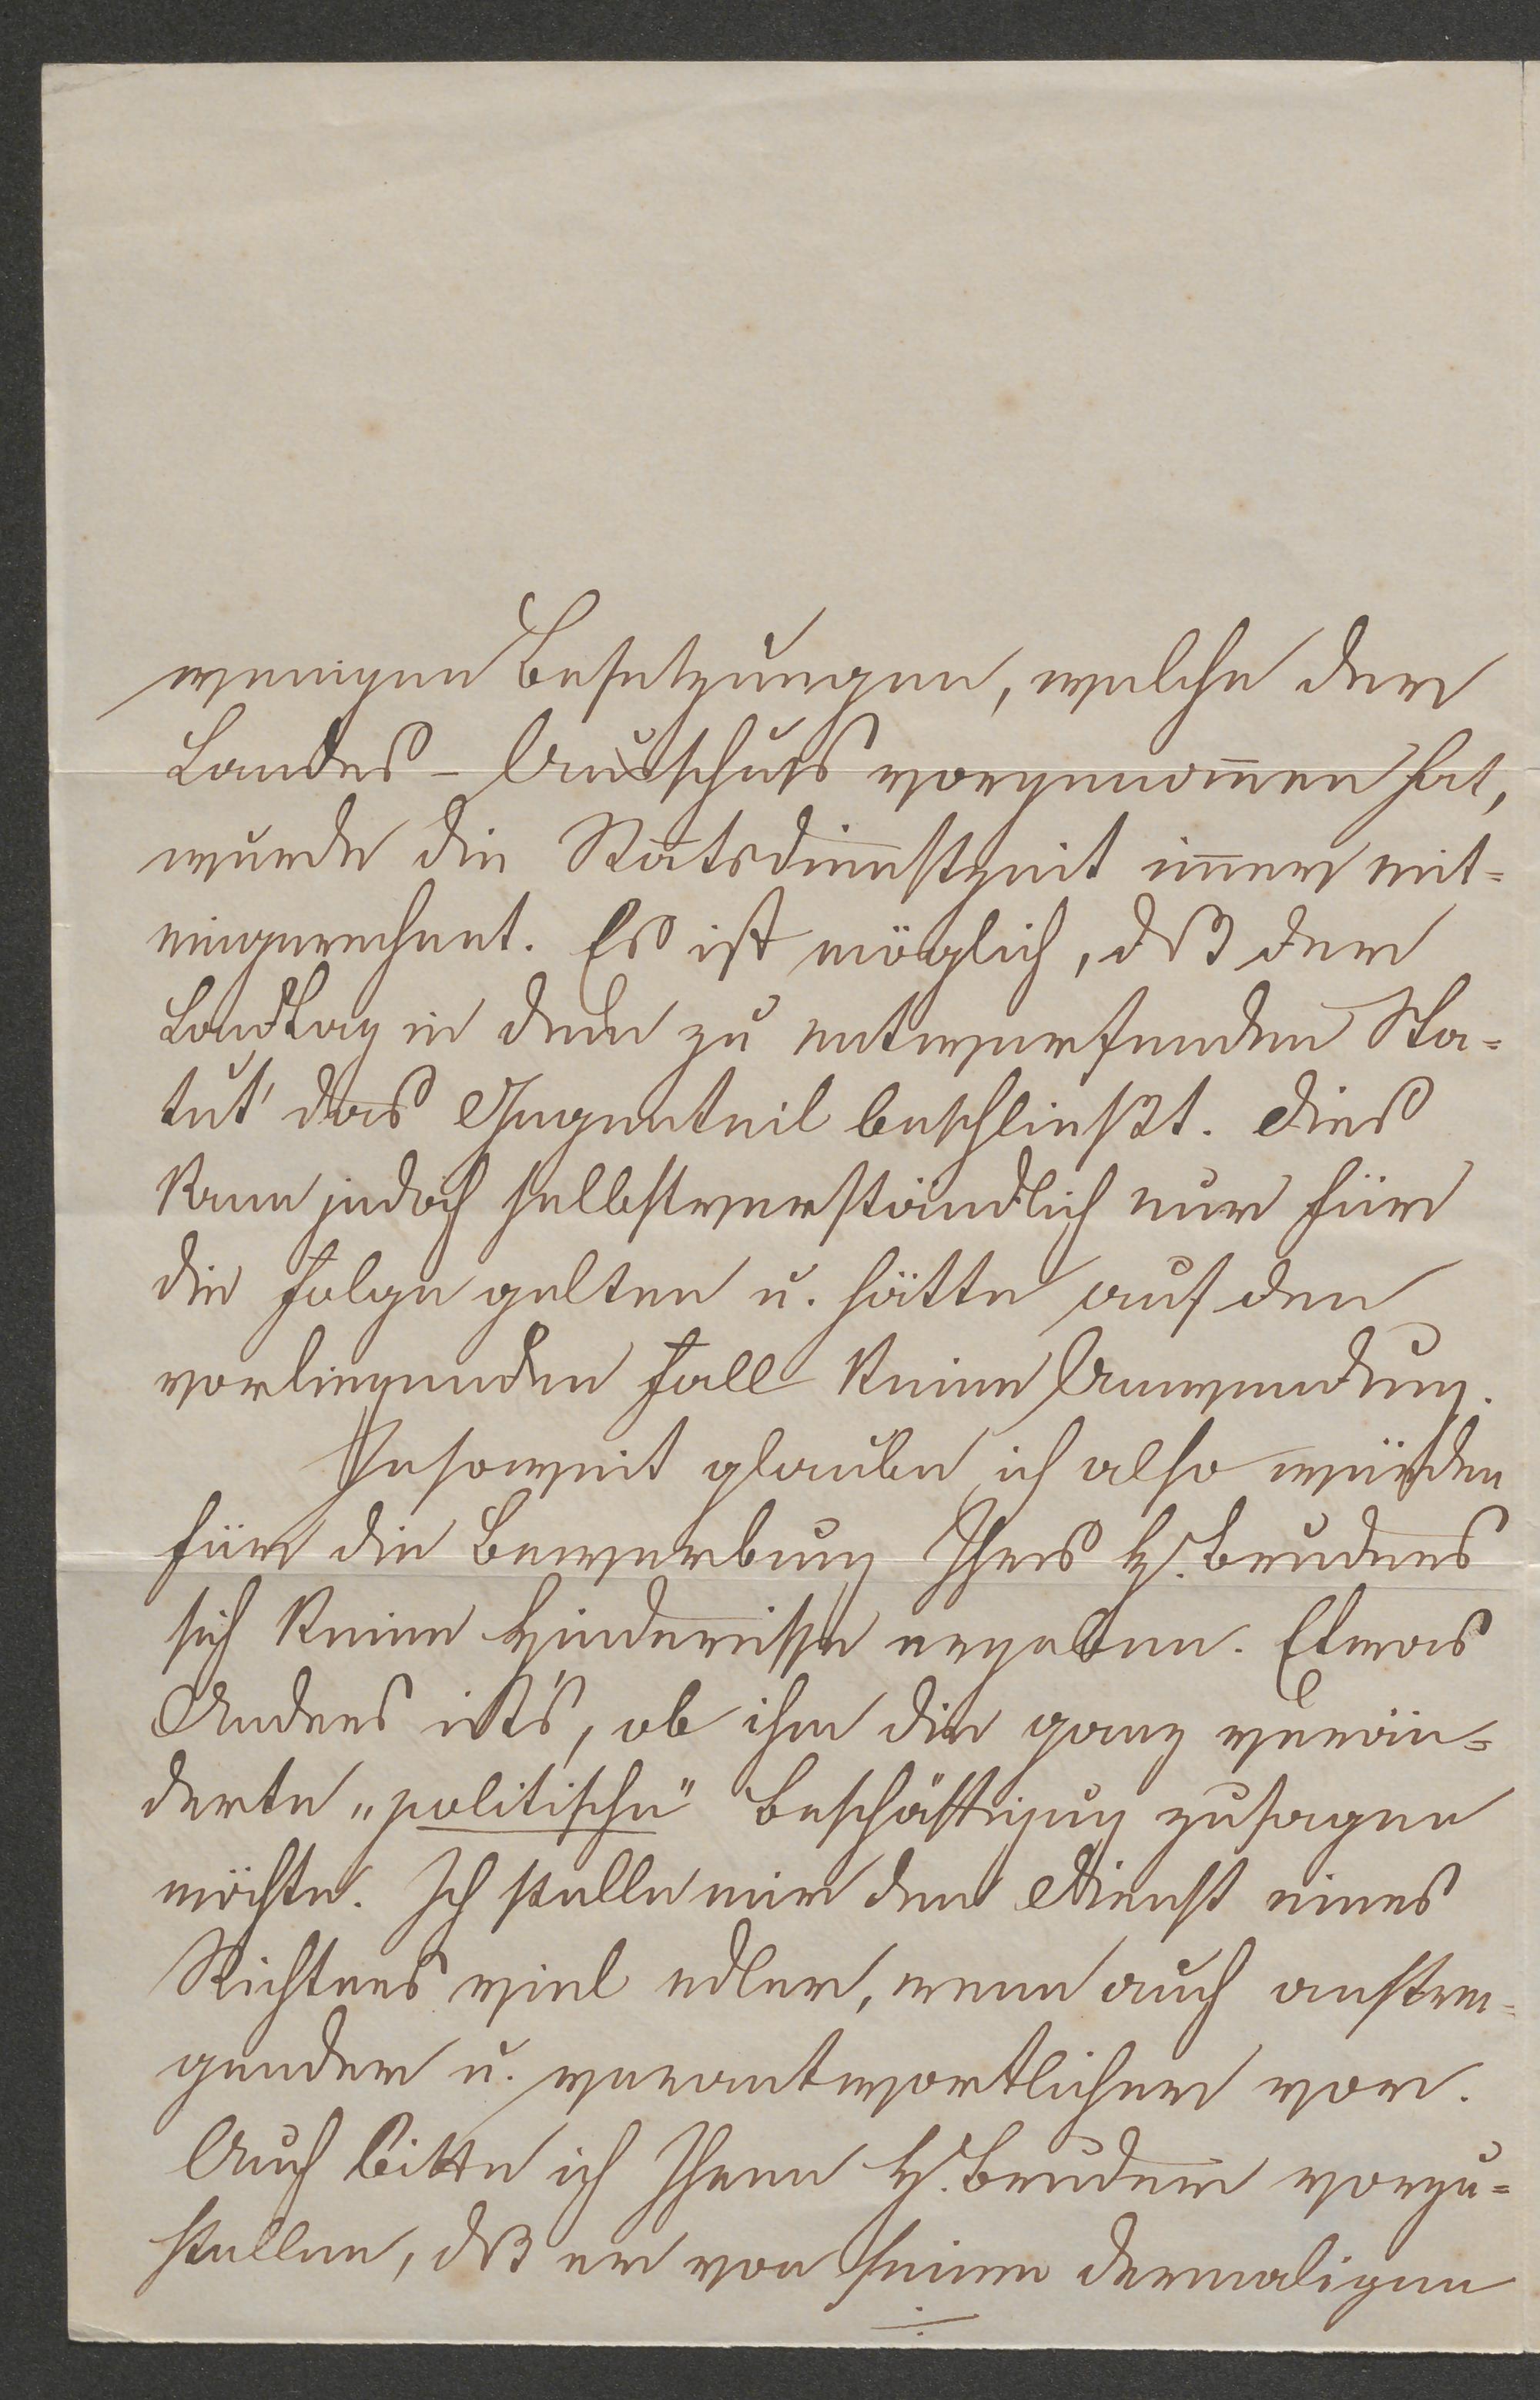 wenigen Besetzungen, welche der
Landes-Ausschuss vorgenom̄en hat,
wurde die Statsdienstzeit im̄er mit-
eingerechnet. Es ist möglich, dß der
Landtag in dem zu entwerfenden Sta-
tut das Gegenteil beschließt. Dies
kann jedoch selbstverständlich nur für
die Folge gelten u. hätte auf den
vorliegenden Fall keine Anwendung.
Insoweit glaube ich also würden
für die Bewerbung Ihres H. Bruders
sich keine Hindernisse ergeben. Etwas
Anderes ist's, ob ihm die ganz verän-
derte „politische" Beschäftigung zusagen
möchte. Ich stelle mir den Dienst eines
Richters viel edler, wenn auch anstren-
gender u. verantwortlicher vor.
Auch bitte ich Ihren H. Bruder vorzu-
stellen, dß er von seinem dermaligen